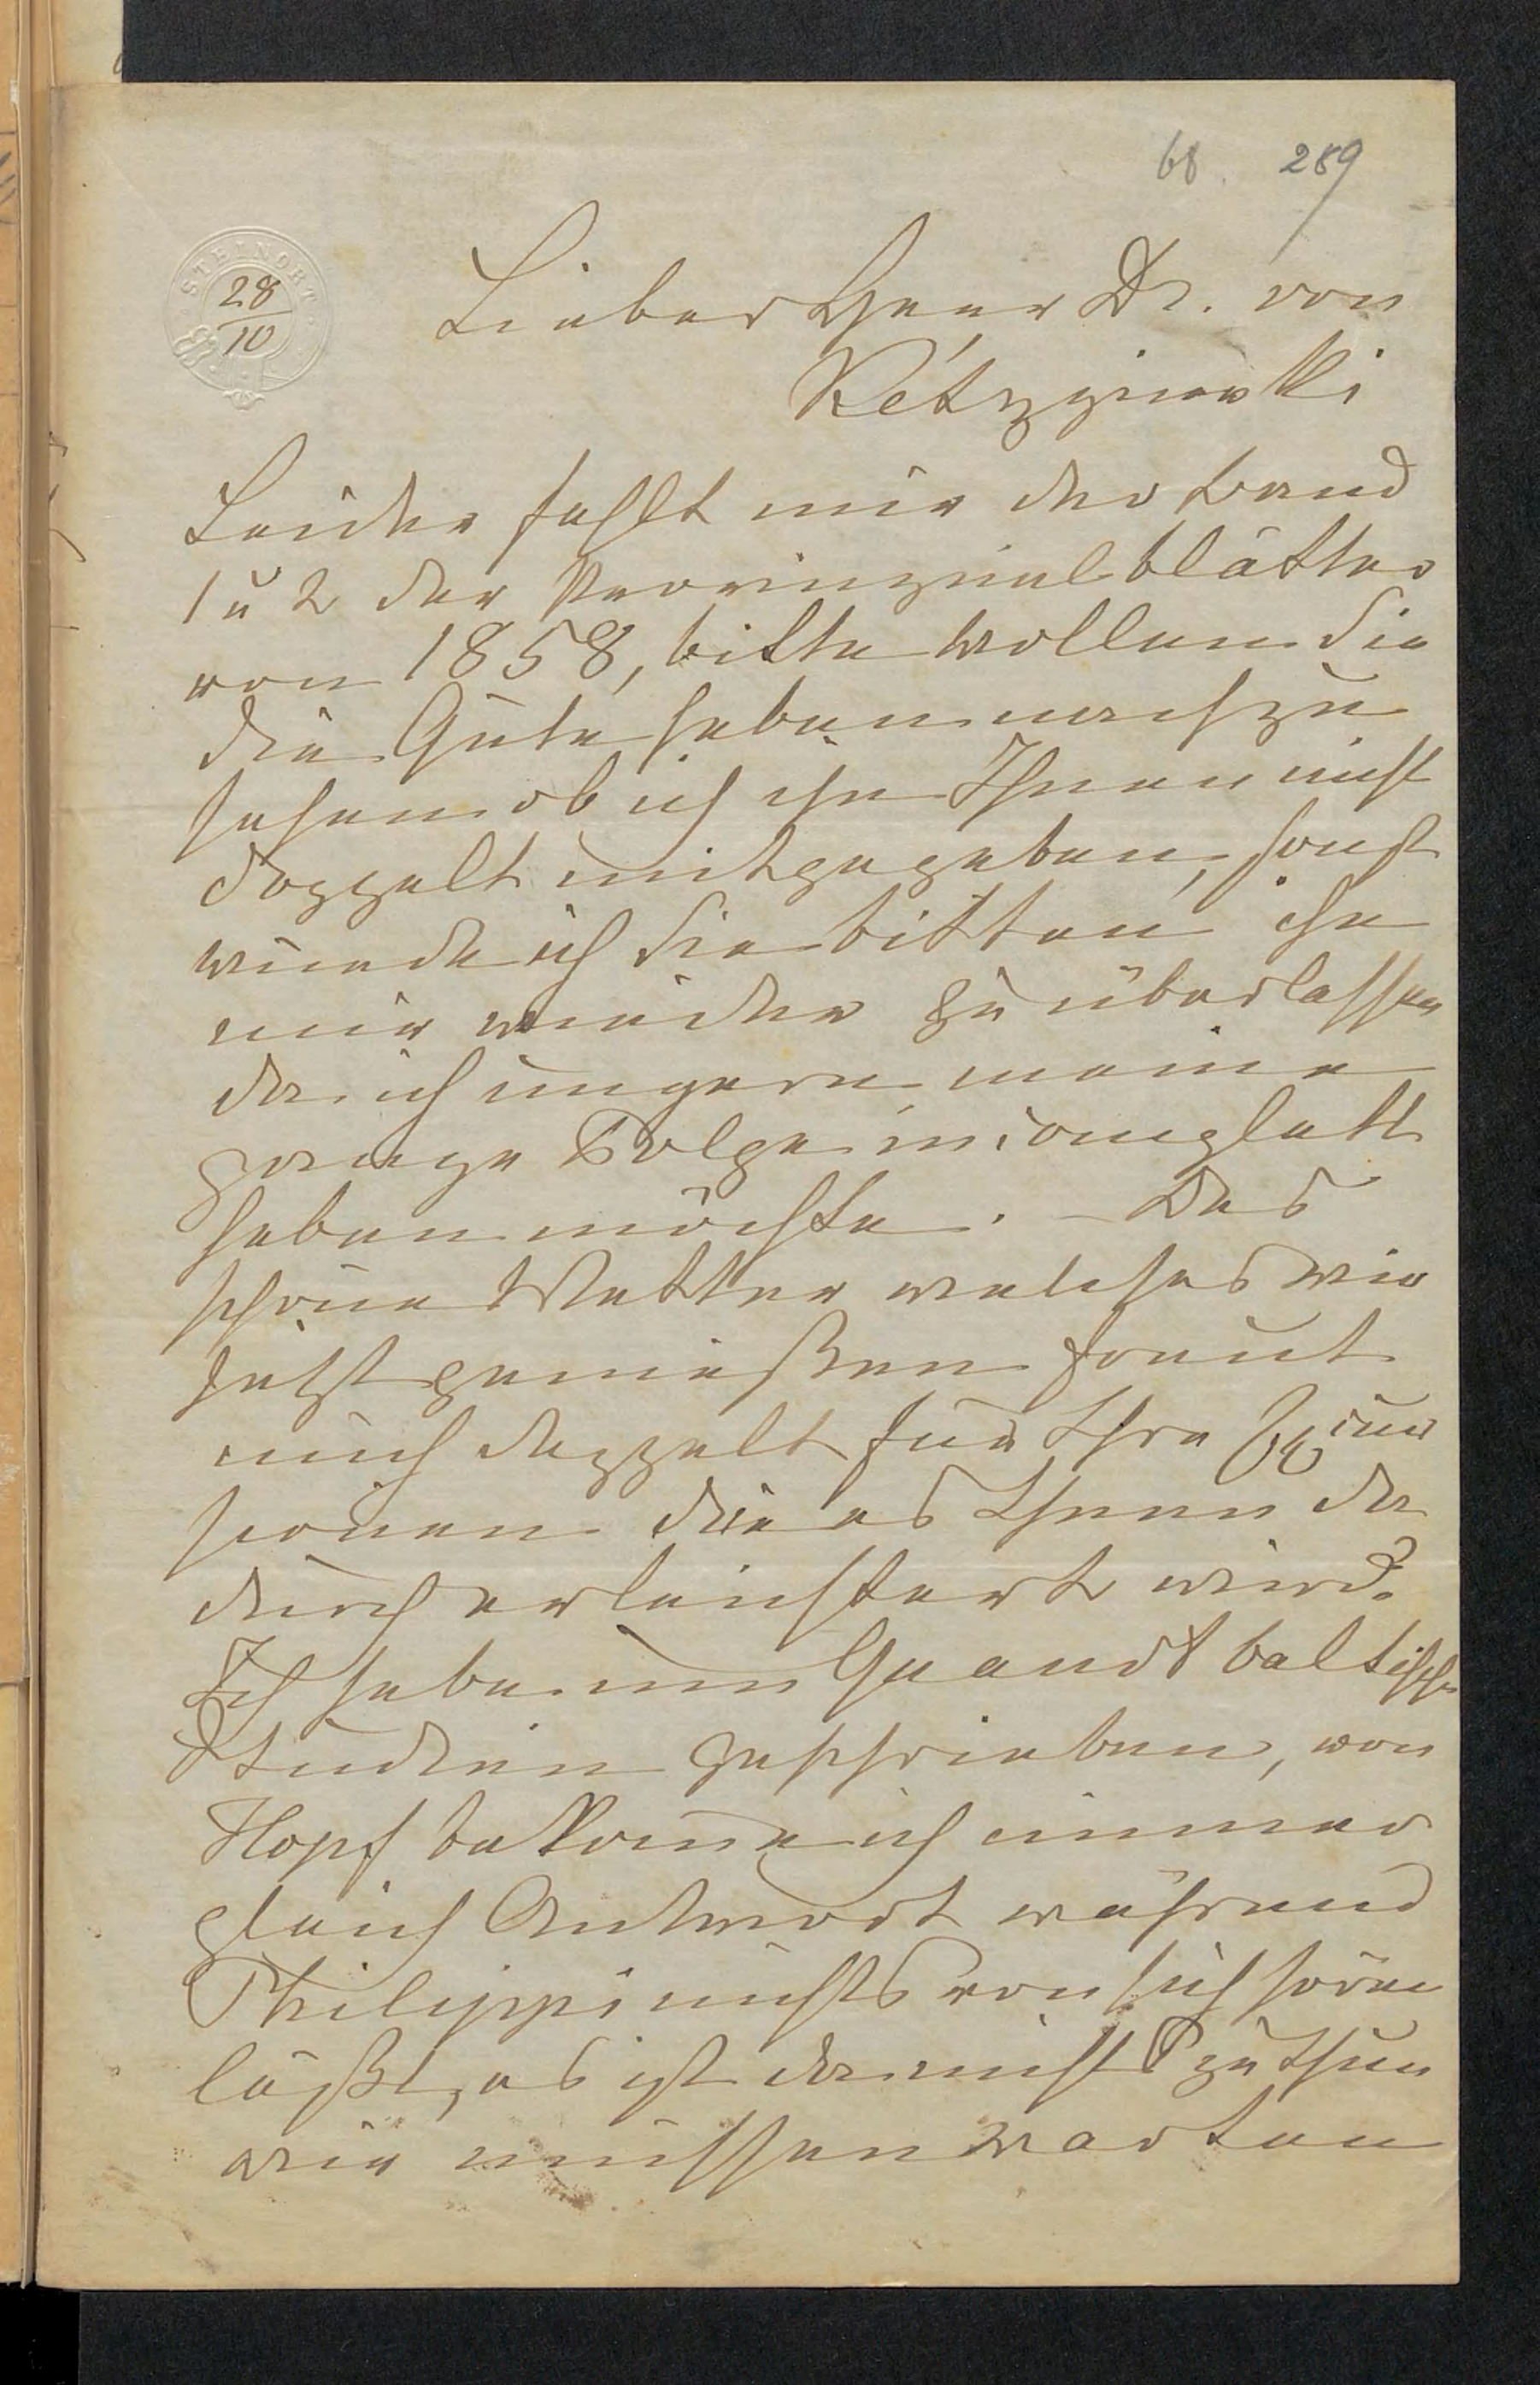 68. 289
STEINORT
28
10
Lieber Herr Dr. von
Kétrzyński
Leider fehlt mir der Band
1 u 2 der Provinzialblätter
von 1858, bitte wollen Sie
die Güte haben nachzu
sehen ob ich ihn Ihnen nicht
doppelt mitgegeben, sonst
würde ich Sie bitten ihn
mir wieder zu überlassen
da ich ungern meine
ganze Folge incomplett
haben möchte. – Das
schöne Wetter welches wir
jetzt genießen freut
mich doppelt für Ihre
die es Ihnen da
durch erleichtert wird.
Ich habe um Quandt baltische
Studien geschrieben, von
Hopf bekome ich immer
gleich Antwort während
Philippi nichts von sich hören
läßt, es ist da nichts zu thun
wir müssen warten